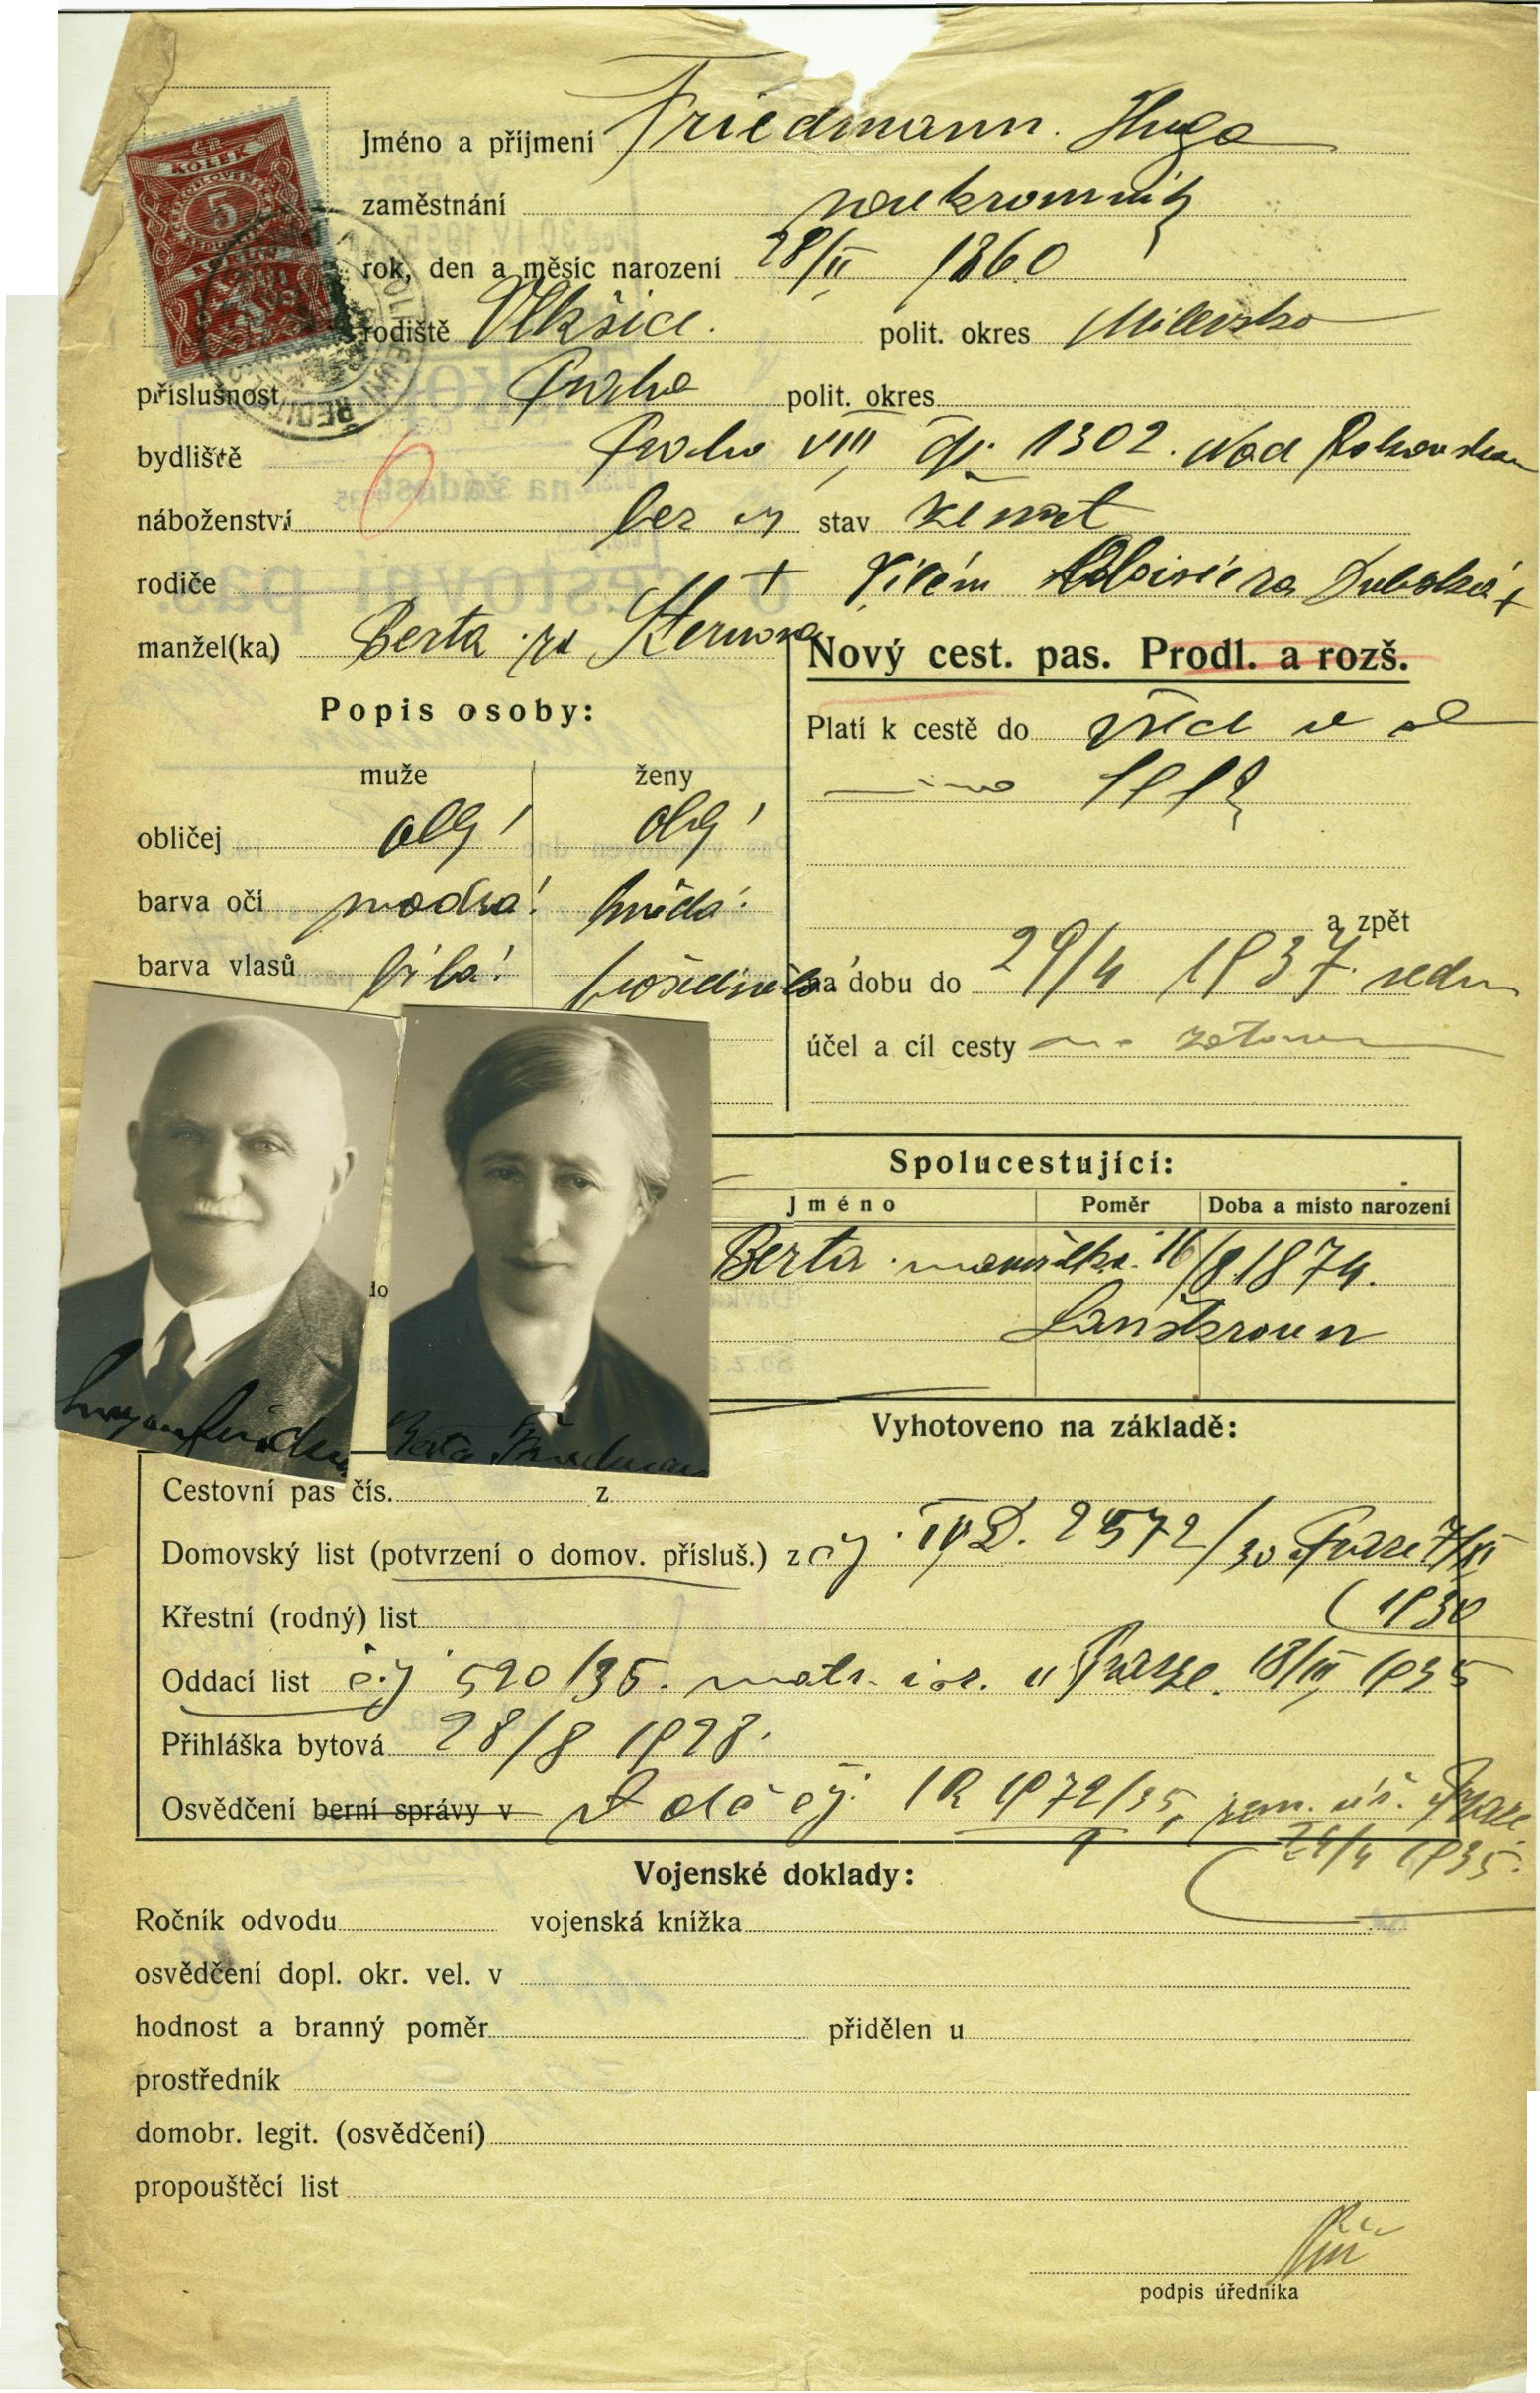 Jméno a příjmení Friedmann. Hugo
zaměstnání soukromník
rok, den a měsíc narození 28/II 1860
rodiště Vlkšice. polit. okres Milevsko
příslušnost Praha polit. okres
bydliště Praha VIII, čp. 1302. Nad Rokoskou
náboženství bez vyz stav ženat
rodiče + Vilém Aloisie roz Dubská +
manžel(ka) Berta rz Sternova
Nový cest. pas. Prodl. a rozš.
Popis osoby:
Platí k cestě do
muže ženy
obličej obl' obl'
barva očí modrá hnědá
barva vlasů bílá prošedivělá
a zpět
na dobu do 29/4 1937.
účel a cíl cesty
Spolucestující:
Jméno Poměr Doba a místo narození
Berta manželka 16/8 1874.
Lanškroun
do
Berta Friedmann
Vyhotoveno na základě:
Cestovní pas čís. z
Domovský list (potvrzení o domov. přísluš.) z čj. IV D. 2572/30 Praze 7/XI
1930
Křestní (rodný) list
Oddací list čj 520/35. matr. isr. v Praze. 18/III 1935
Přihláška bytová 28/8 1928.
Osvědčení berní správy v čj. 1R 1972/35, zem. úř. Praze
24/4 1935.
Vojenské doklady:
Ročník odvodu vojenská knížka
osvědčení dopl. okr. vel. v
hodnost a branný poměr přidělen u
prostředník
domobr. legit. (osvědčení)
propouštěcí list
podpis úředníka
KOLEK
5